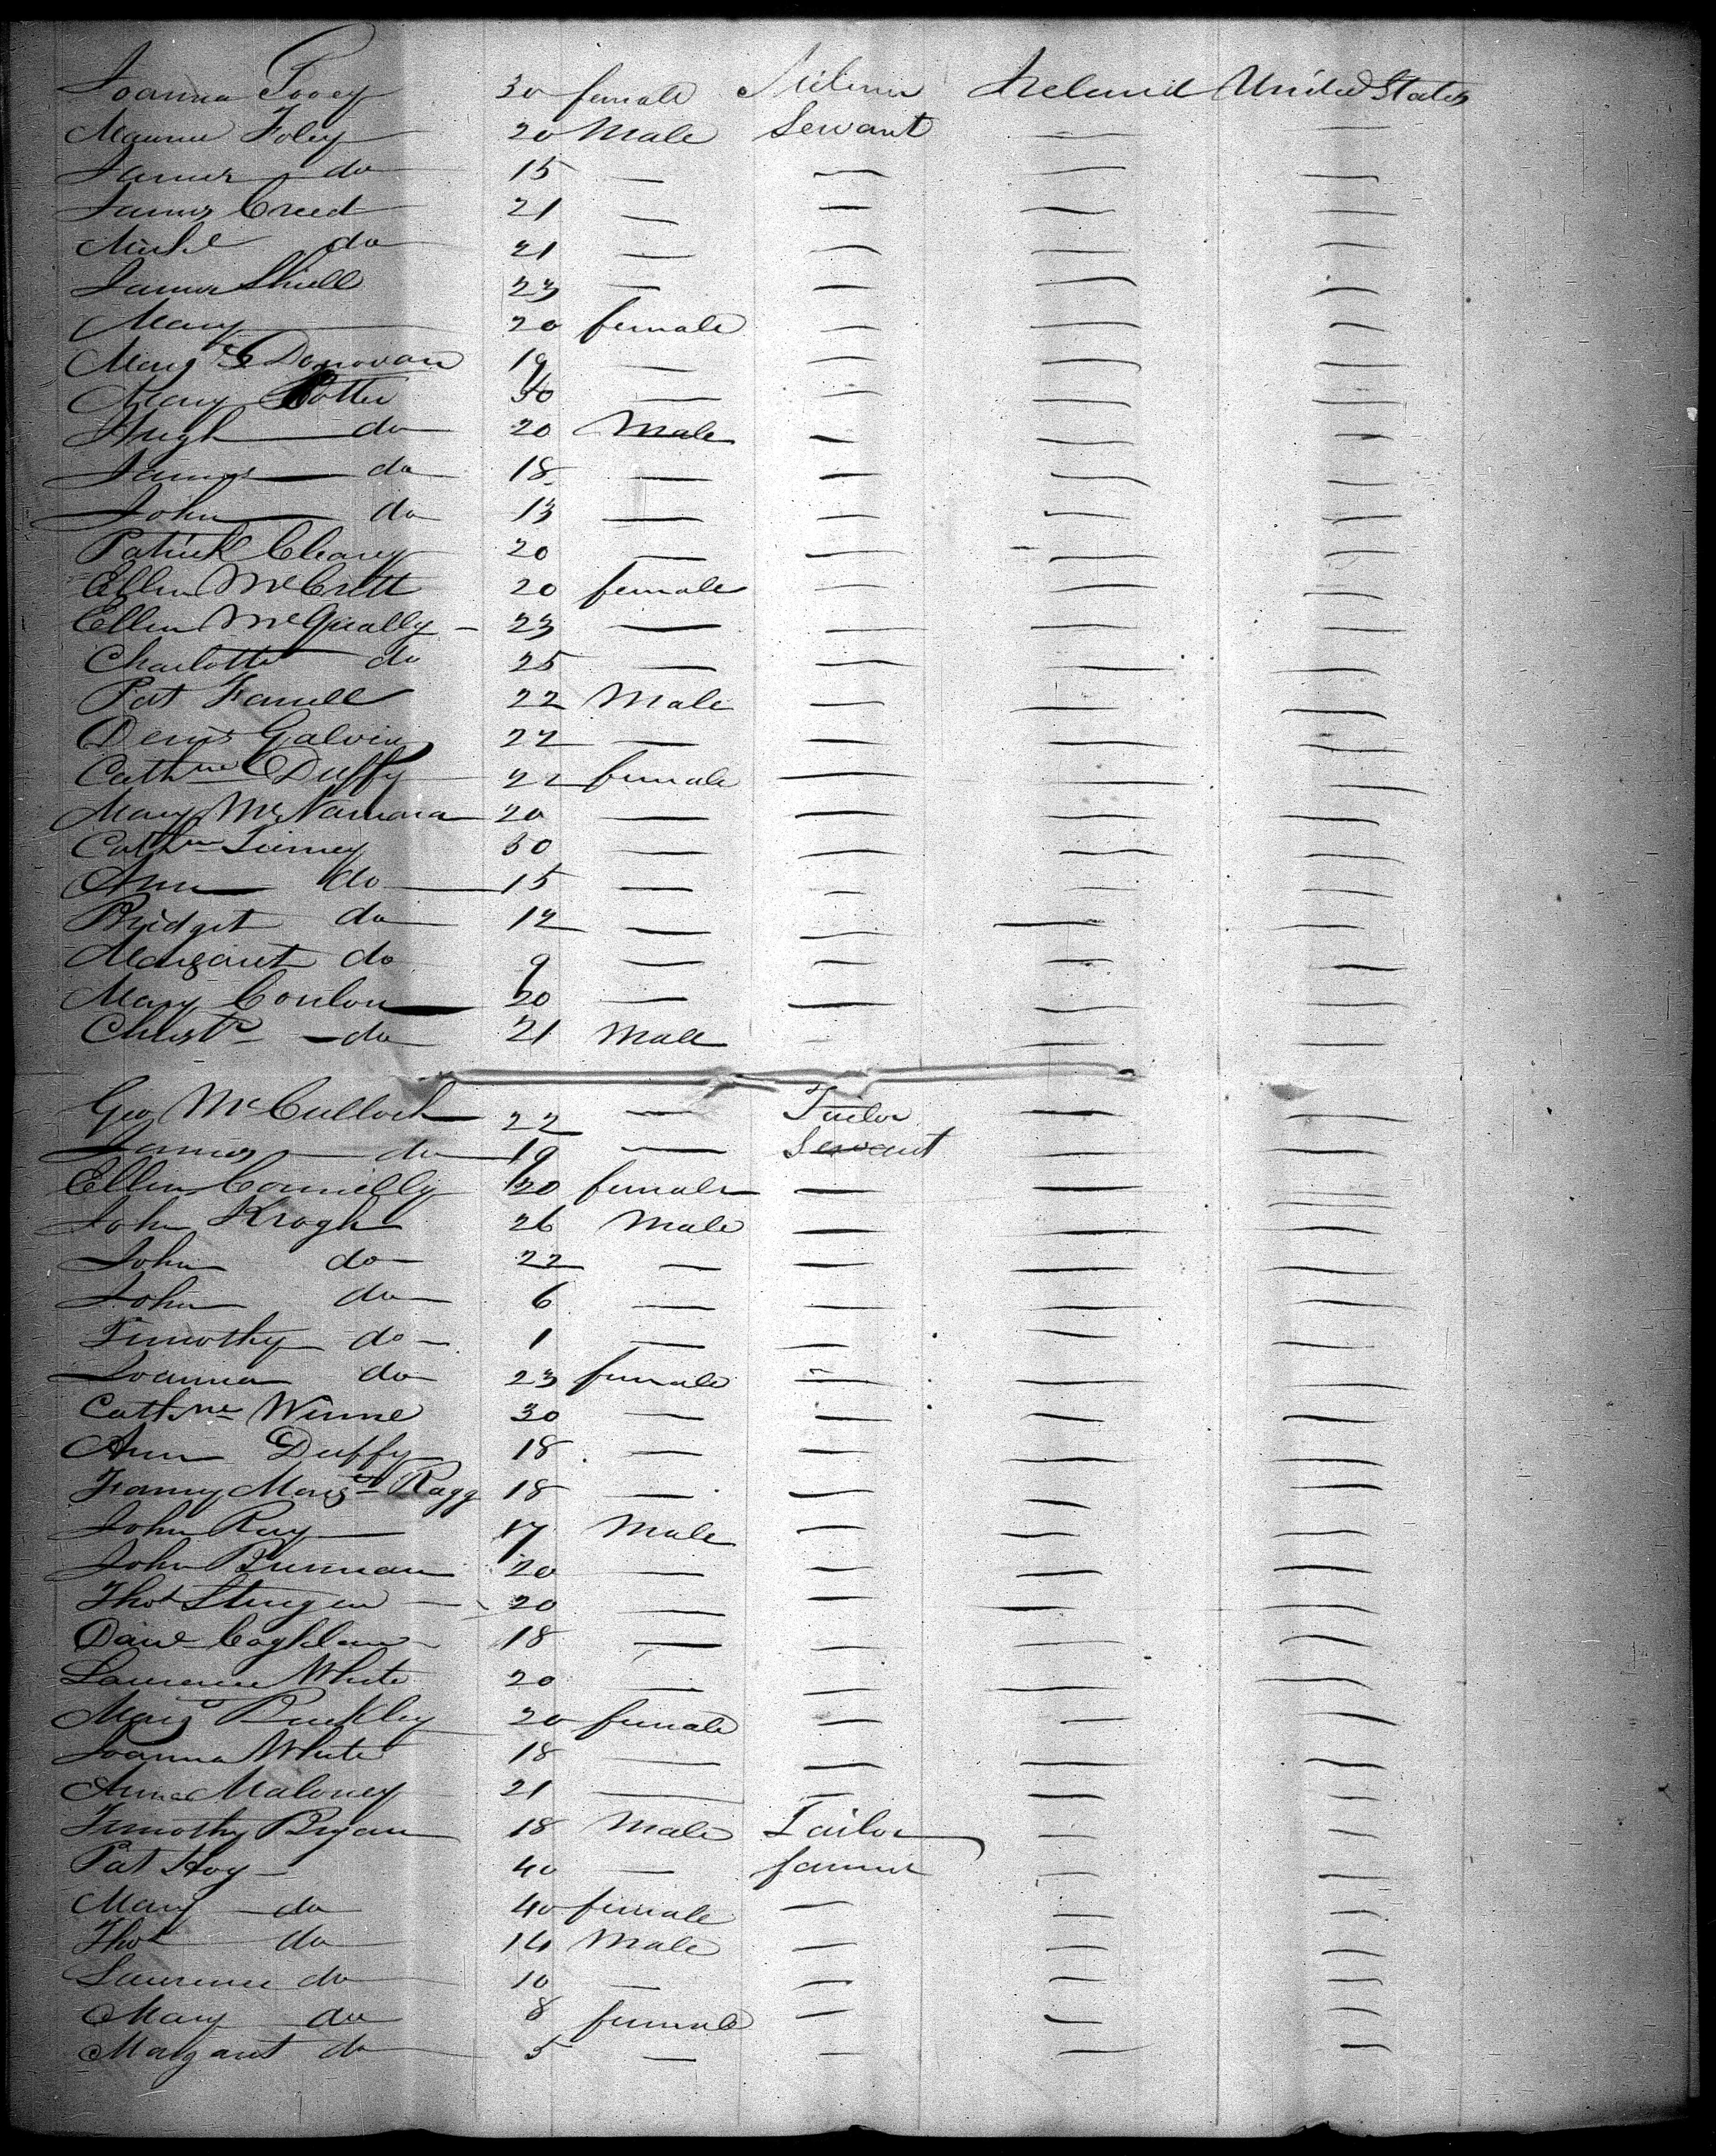 Joanna Tovey 30 female Ireland United States
Maurice Foley 20 Male Servant — —
James do 15 — — — —
James Creed 21 — — — —
Michl do 21 — — — —
James Shiell 23 — — — —
Mary — 20 female — — —
Margt Donovan 19 — — — —
Mary Potter 40 — — — —
Hugh do 20 Male — — —
James do 18 — — — —
John do 13 — — — —
Patrick Cleary 20 — — — —
Ellen 20 female — — —
Ellen McGnally 23 — — — —
Charlotte do 25 — — — —
Pat Farrell 22 Male — — —
Denis Galvin 22 — — — —
Cathne Duffy 22 female — — —
Mary McNamara 20 — — — —
Cathne Tierney 30 — — — —
Ann do 15 — — — —
Bridget do 12 — — — —
Margaret do 9 — — — —
Mary Conlon 20 — — — —
Christr do 21 Male — —
Geo McCulloch 22 — Tailor — —
James do 19 — Servant — —
Ellen Connelly 20 female — — —
John Krogh 26 Male — — —
John do 22 — — — —
John do 6 — — — —
Timothy do 1 — — — —
Joanna do 23 female — — —
Cathne Winne 30 — — — —
Ann Duffy 18 — — — —
Fanny Margt Ragg 18 — — — —
John Ray 17 Male — — —
John Brennan 20 — — — —
Thos 20 — — — —
Danl Coghlan 18 — — — —
Laurence White 20 — — — —
Marg Buckley 20 female — — —
Joanna White 18 — — — —
Anne Maloney 21 — — — —
Timothy Bryan 18 Male Tailor — —
Pat Hoy 40 — farmer — —
Mary do 40 female — — —
Thos do 14 Male — — —
Laurence do 10 — — — —
Mary do 8 female — — —
Margaret do 5 — — — —